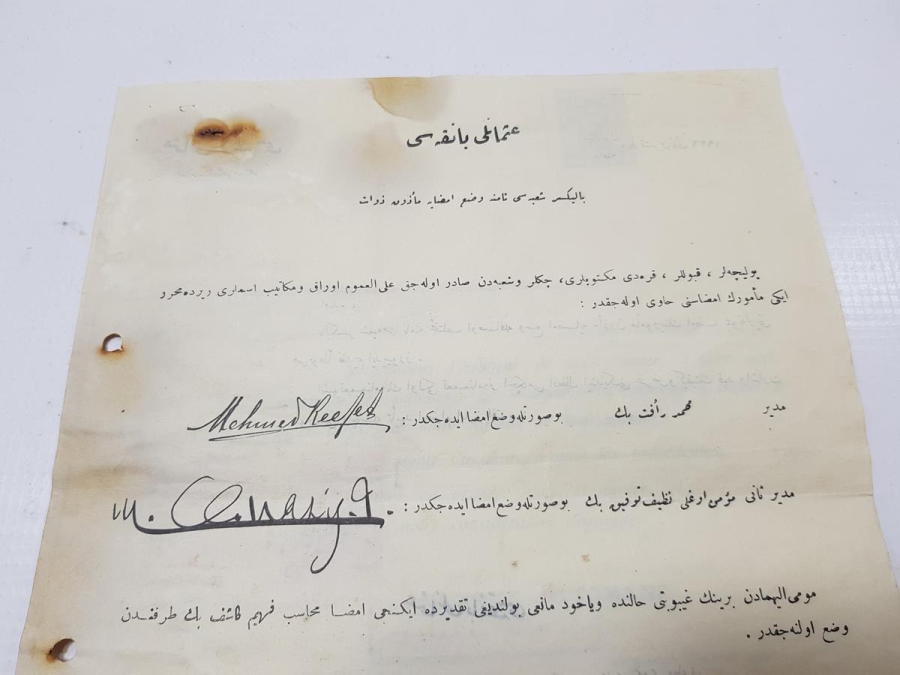 عثمانلی بانقه‌سی
بالیکسر شعبه‌سی نامنه وضع امضایه مأذون ذوات
پولیچه‌لر ، قبوللر ، قره‌دی مکتوبلری، چکلر وشعبه‌دن صادر اوله‌جق علی‌العموم اوراق ومکاتیب اسماری زیرده محرر
ایکی مأمورك امضاسنی حاوی اوله‌جقدر :
مدیر محمد رأفت بك بوصورتله وضع امضا ایده‌جکدر : Mehmed Reefet
مدیر ثانی مؤمن اوغلی نظیف توفیق بك بوصورتله وضع امضا ایده‌جکدر :
مومی الیهمادن برینك غیبوتی حالنده ویاخود مانعی بولندیغی تقدیرده ایکنجی امضا محاسب فهیم کاشف بك طرفندن
وضع اولنه‌جقدر .